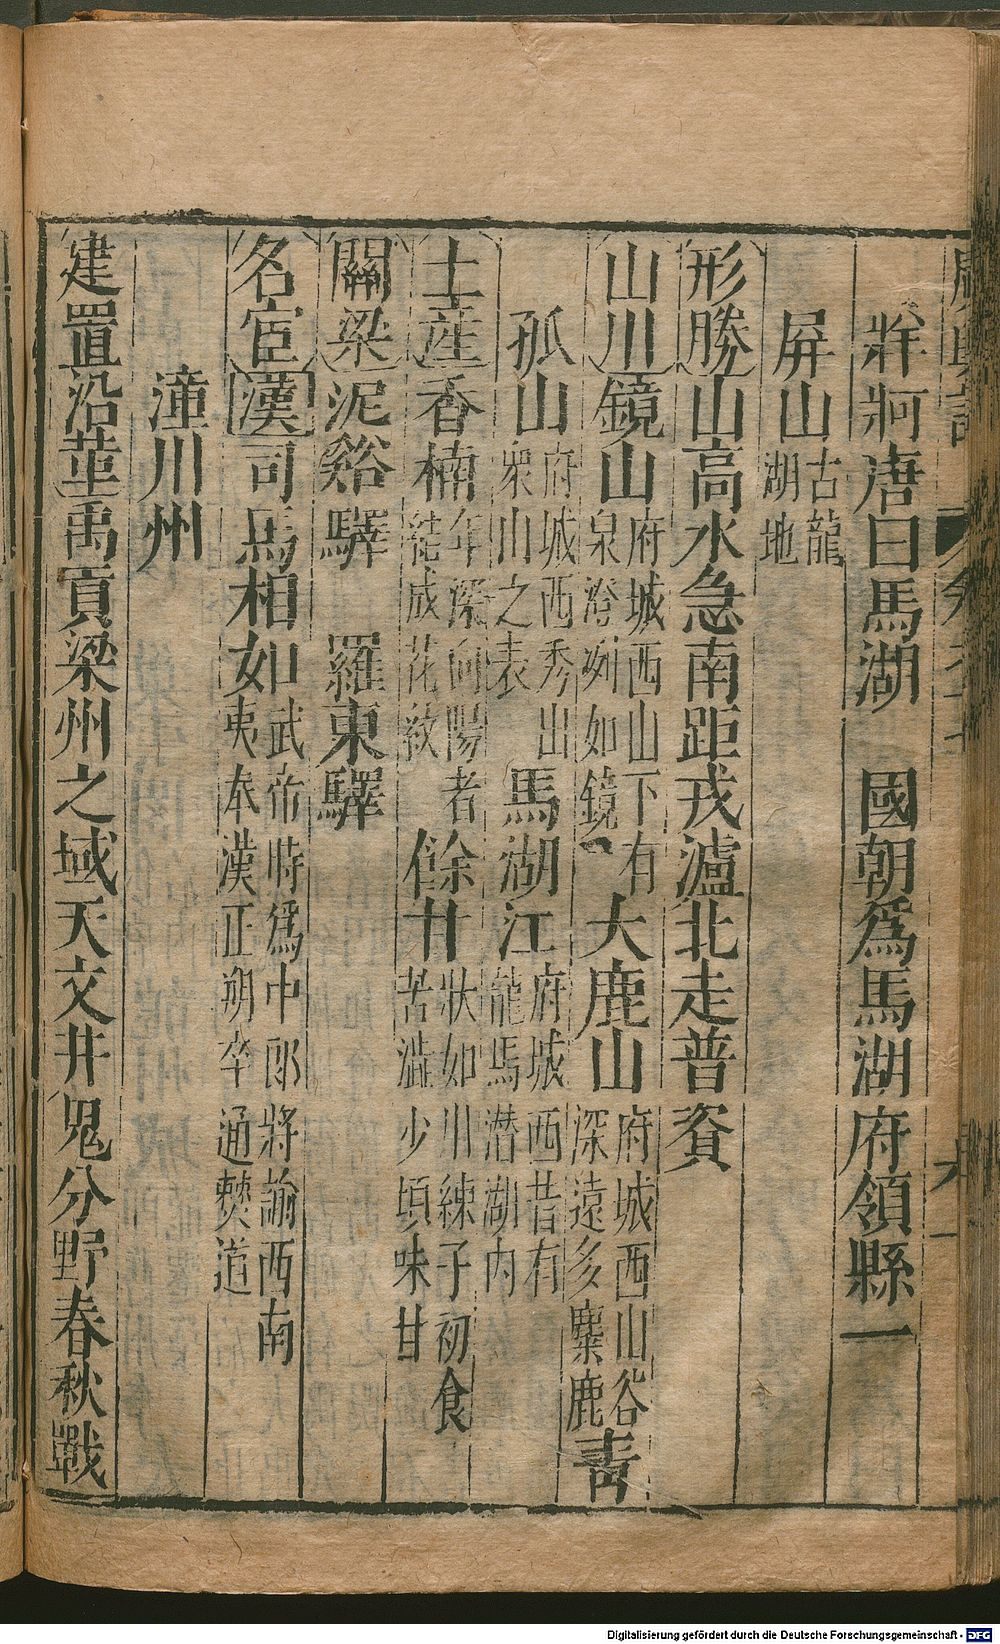 廣輿記
卷之十七
六
牂牁唐曰馬湖　國朝爲馬湖府領縣一
屏山古龍湖地
形勝山高水急南距戎瀘北走普資
山川鏡山府城西山下有泉澄冽如鏡大鹿山府城西山谷深遠多麋鹿青
孤山府城西秀出衆山之表馬湖江府城西昔有龍馬潜湖内
土産香楠年深向陽者結成花紋餘甘狀如川練子初食苦澁少頃味甘
關梁泥谿驛　羅東驛
名宦漢司馬相如武帝時爲中郎將諭西南夷奉漢正朔卒通僰道
潼川州
建置沿革禹貢梁州之域天文井鬼分野春秋戰
Digitalisierung gefördert durch die Deutsche Forschungsgemeinschaft - DFG